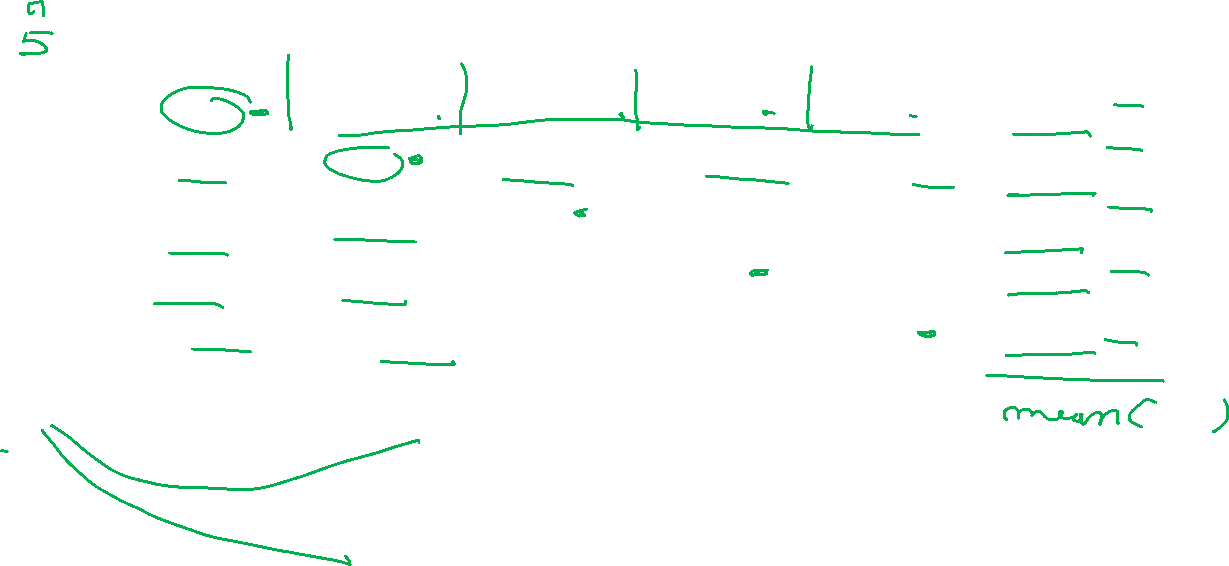 5
mean( )